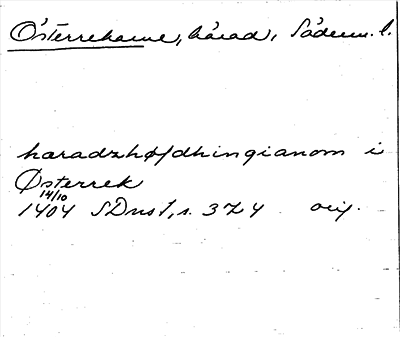 Österrekarne, härad, Söderm. l.
haradzhøfdhingianom i
Østerrek
14/10
1404 SDns 1, s. 324 orig.